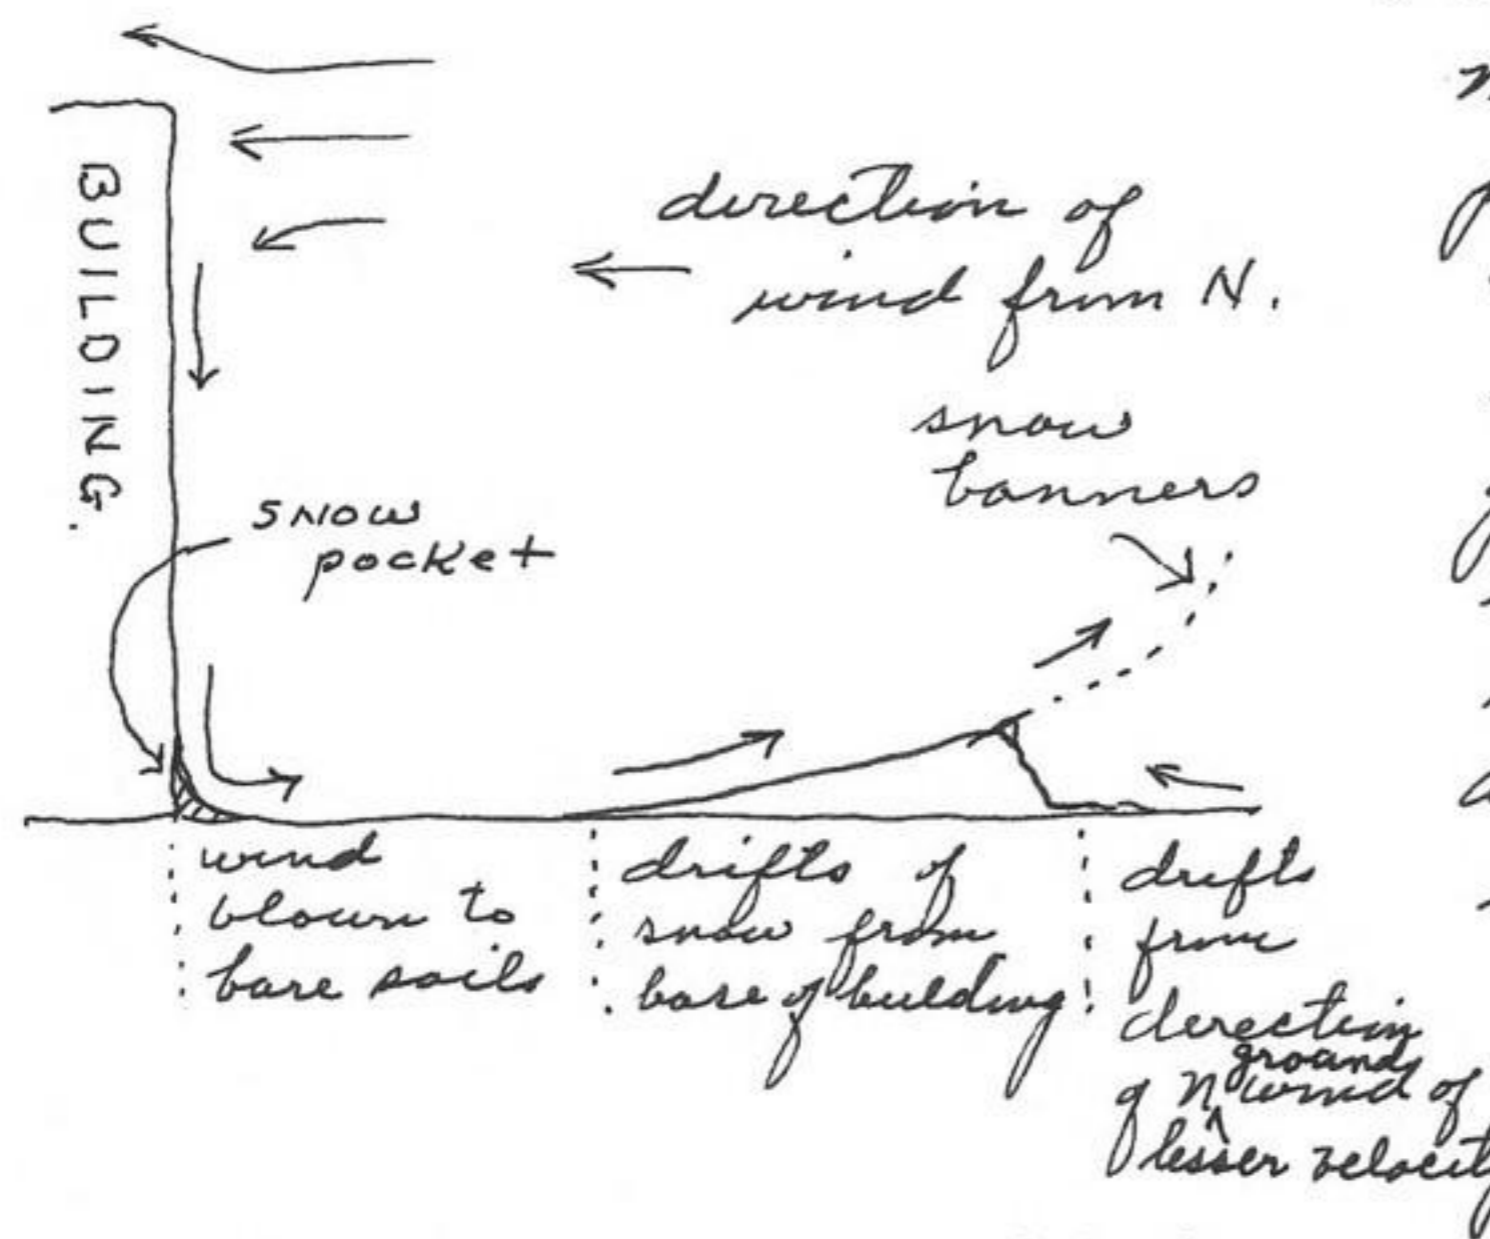 BUILDING.
direction of
wind from N.
snow
banners
snow
pocket
wind
blown to
bare soils
drifts of
snow from
base of building
drifts
from
direction
ground
of N wind of
lesser velocity